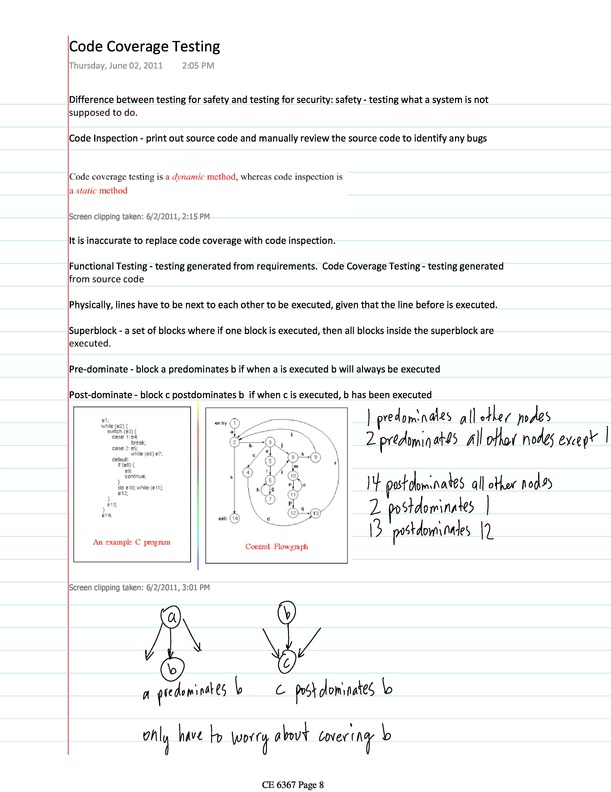 Code Coverage Testing
Thursday, June 02, 2011 2:05 PM
Difference between testing for safety and testing for security: safety - testing what a system is not
supposed to do.
Code Inspection - print out source code and manually review the source code to identify any bugs
Code coverage testing is a dynamic method, whereas code inspection is
a static method
Screen clipping taken: 6/2/2011, 2:15 PM
It is inaccurate to replace code coverage with code inspection.
Functional Testing - testing generated from requirements. Code Coverage Testing - testing generated
from source code
Physically, lines have to be next to each other to be executed, given that the line before is executed.
Superblock - a set of blocks where if one block is executed, then all blocks inside the superblock are
executed.
Pre-dominate - block a predominates b if when a is executed b will always be executed
Post-dominate - block c postdominates b if when c is executed, b has been executed
e1;
while (e2) {
switch (e3) {
case 1: e4;
break;
case 2: e5;
while (e6) e7;
default:
if (e8) {
e9;
continue;
}
do e10; while (e11);
e12;
}
e13;
}
e14;
An example C program
entry 1
2
3
4
5
6
7
8
9
10
11
12
13
exit 14
Control Flowgraph
1 predominates all other nodes
2 predominates all other nodes except 1
14 postdominates all other nodes
2 postdominates 1
13 postdominates 12
Screen clipping taken: 6/2/2011, 3:01 PM
a
b
b
c
a predominates b
c postdominates b
only have to worry about covering b
CE 6367 Page 8